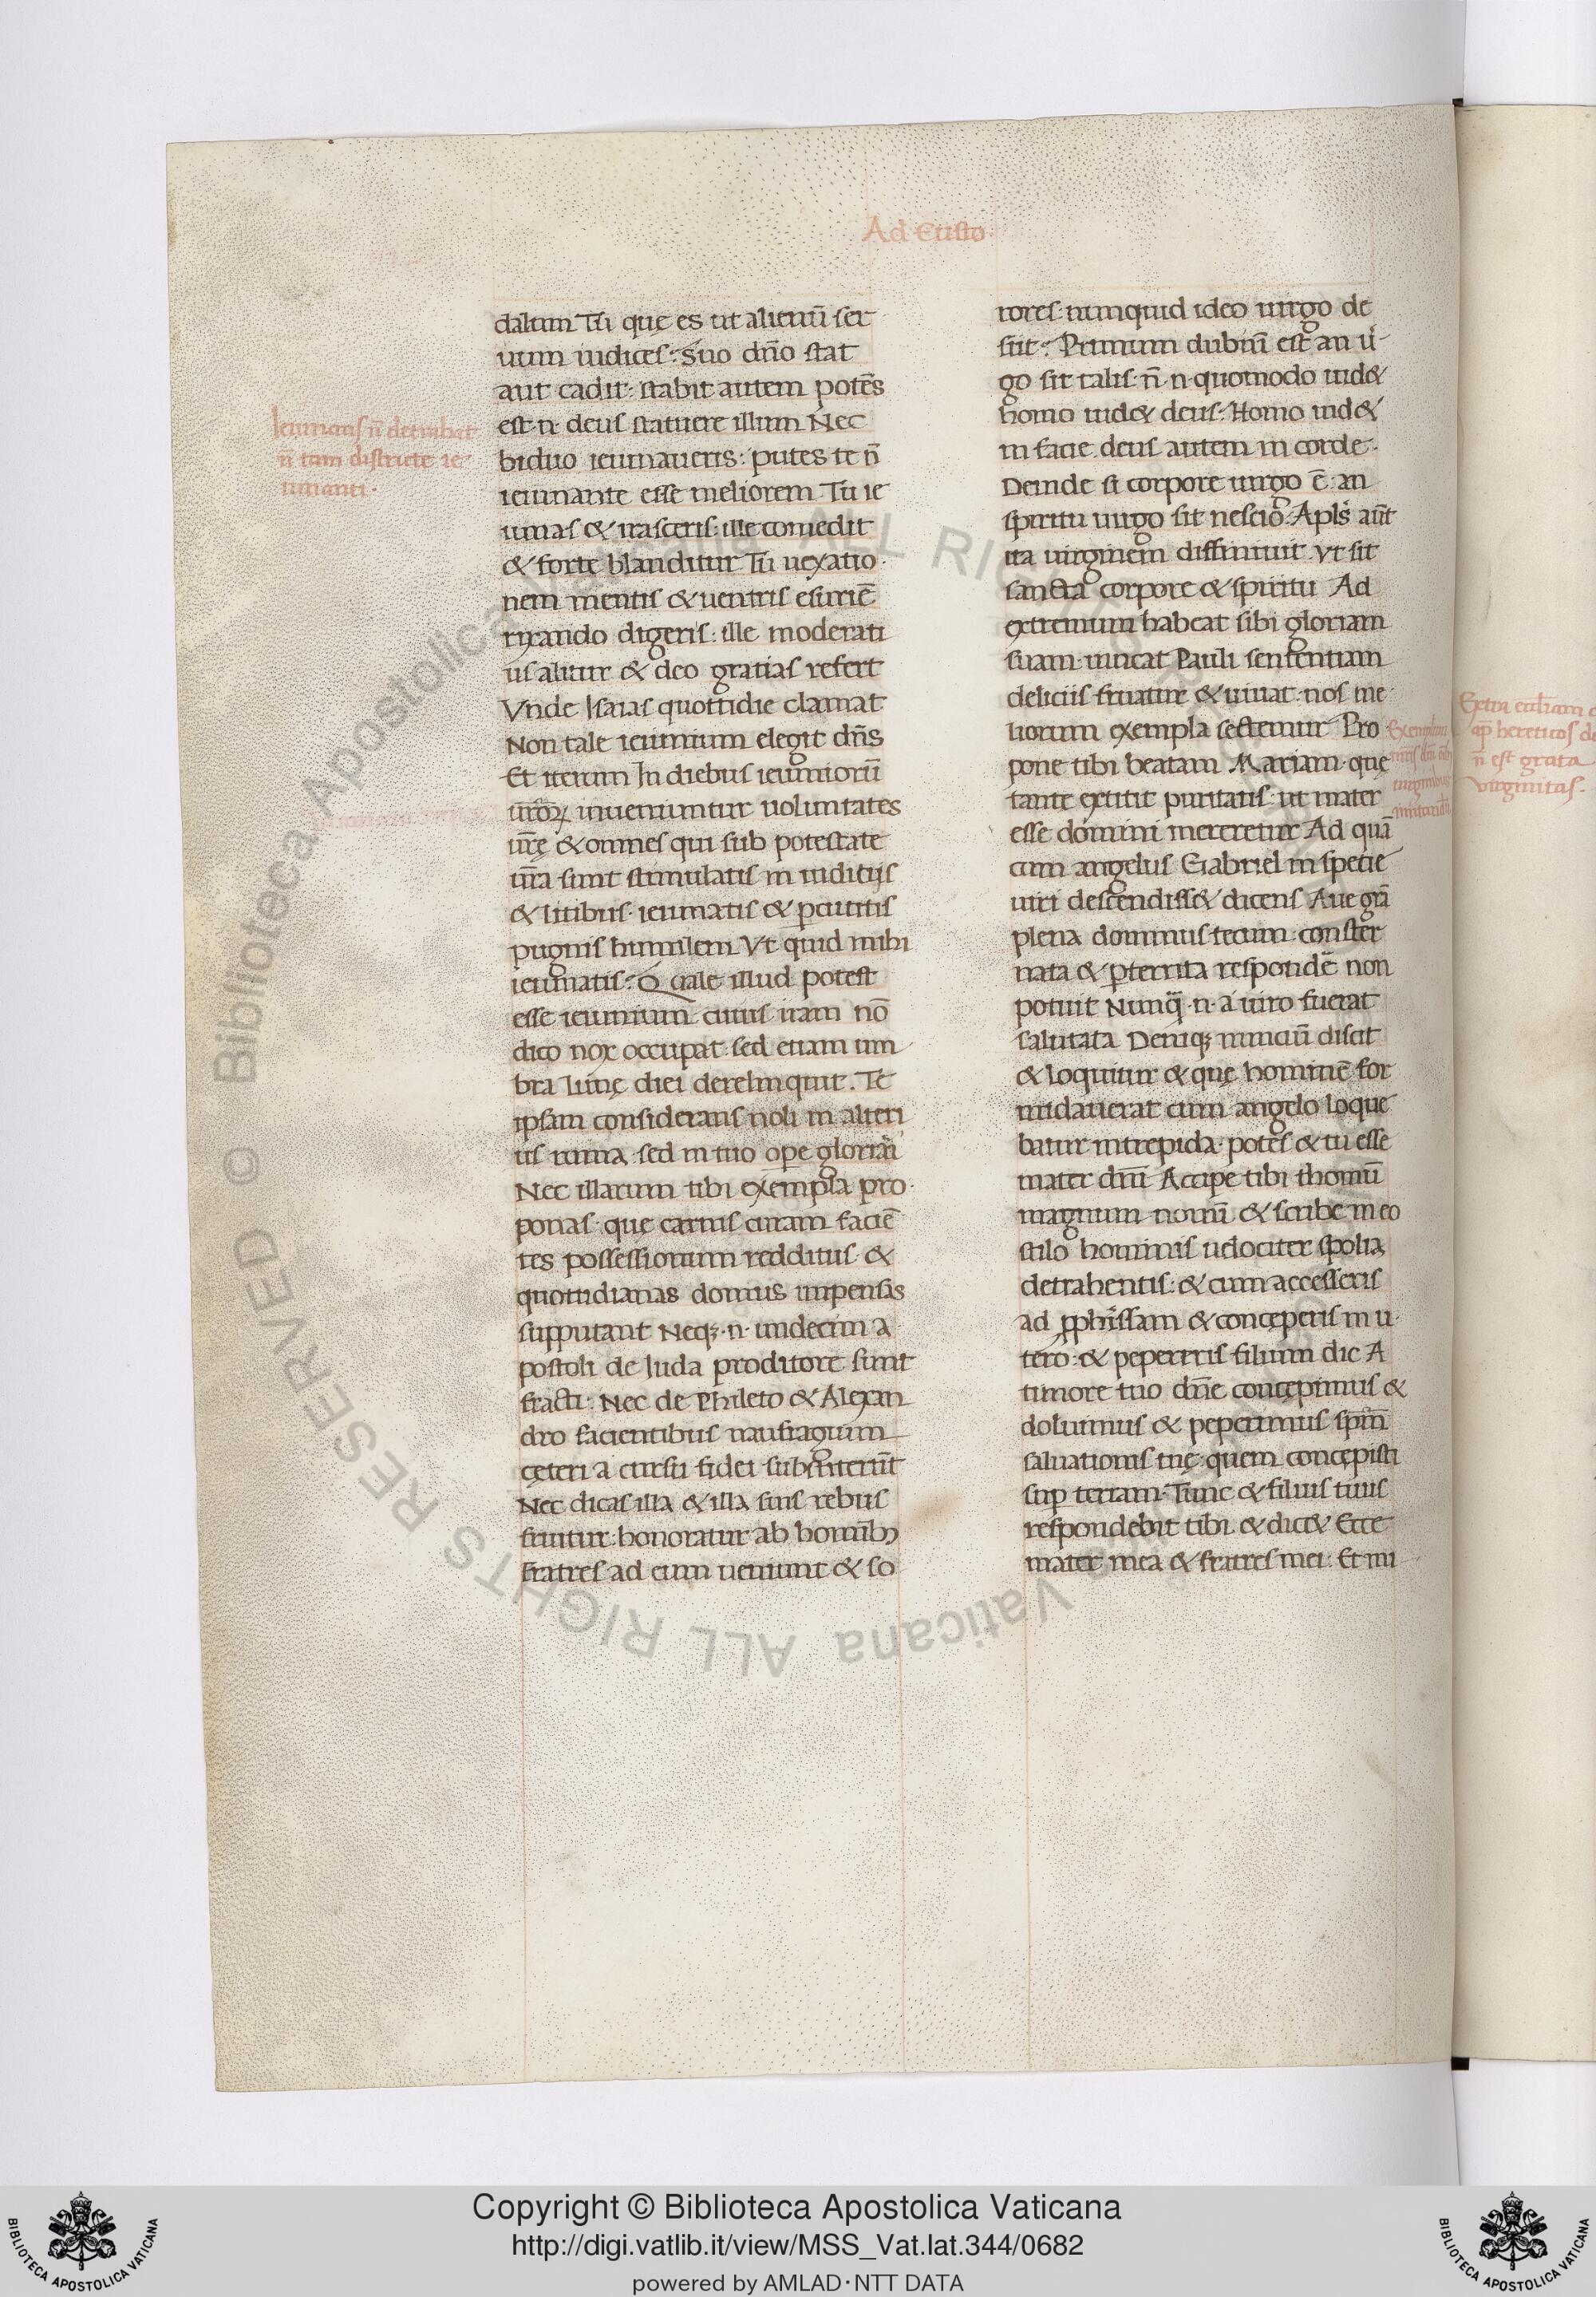 Ad Eusto
dalum Tu que es ut alienū ser
uum iudices? Suo dn̄o stat
aut cadit: stabit autem potēs
est .n. deus statuere illum Nec
biduo ieiunaueris: putes te n̄
ieiunante esse meliorem. Tu ie
iunas & irasceris: ille comedit
& forte blanditur Tu uexatio
nem mentis & uentris esuriē
rixando digeris: ille moderati
us alitur & deo gratias refert
Vnde Isaias quottidie clamat
Non tale ieiunium elegit dn̄s
Et iterum In diebus ieiuniorū
ur̄oꝝ inueniuntur uoluntates
ur̄ę & omnes qui sub potestate
ur̄a sunt stimulatis in iuditijs
& litibus ieiunatis & ꝑcutitis
pugnis humilem Vt quid mihi
ieiunatis? Quale illud potest
esse ieiunium cuius iram nō
dico nox occupat sed etiam um
bra lunę diei derelinquit. Te
ipsam considerans noli in alteri
us ruina sed in tuo opere gloriari
Nec illarum tibi exempla pro
ponas que carnis curam faciē
tes possessionum redditus &
quottidianas domus impensas
supputant Neqꝫ .n. undecim a
postoli de Iuda proditore sunt
fracti: Nec de Phileto & Alexan
dro facientibus naufragium
cęteri a cursu fidei substiterūt
Nec dicas illa & illa suis rebus
fruitur: honoratur ab homībꝫ
fratres ad eum ueniunt & so
rores: nunquid ideo uirgo de
siit? Primum dubiū est an uir
go sit talis: n̄ .n. quomodo uid&
homo uid& deus. Homo uid&
in facie. deus autem in corde.
Deinde si corpore uirgo ē: an
spiritu uirgo sit nescio. Apl's aūt
ita uirginem diffiniuit Vt sit
sancta corpore & spiritu Ad
extremum habeat sibi gloriam
suam: uincat Pauli sententiam
deliciis fruatur & uiuat: nos me
liorum exempla sectemur Pro
pone tibi beatam Mariam quę
tante extitit puritatis: ut mater
esse domini mereretur Ad quā
cum angelus Gabriel in spetie
uiri descendiss& dicens Aue gr̄a
plena dominus tecum conster
nata & ꝑterrita respondere non
potuit Nunq̄ .n. a uiro fuerat
salutata Deniqꝫ nunciū discit
& loquitur & quę hominē for
midauerat cum angelo loque
batur intrepida. potes & tu esse
mater dn̄i Accipe tibi thomū
magnum nouū & scribe in eo
stilo hominis uelociter spolia
detrahentis: & cum accesseris
ad ꝓphetissam & concęperis in u
tero: & pepereris filium dic A
timore tuo dn̄e concępimus &
doluimus & peperimus spm̄
saluationis tuę quem concępisti
suꝑ terram. Tunc & filius tuus
respondebit tibi & dic& Ecce
mater mea & fratres mei. Et mi
Ieiunans n̄ detrahat
n̄ tam districte ie
iunanti.
Exemplum
imitandū
n̄ est grata
virginitas.
© Biblioteca Apostolica Vaticana ALL RIGHTS RESERVED
Copyright © Biblioteca Apostolica Vaticana
http://digi.vatlib.it/view/MSS_Vat.lat.344/0682
powered by AMLAD·NTT DATA
BIBLIOTECA APOSTOLICA VATICANA
BIBLIOTECA APOSTOLICA VATICANA